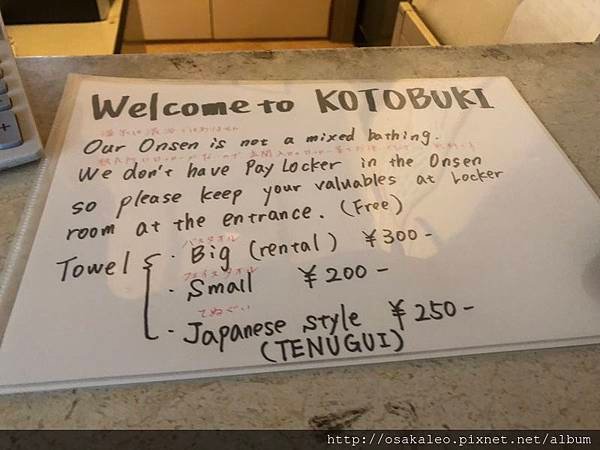 Welcome to KOTOBUKI
Our Onsen is not a mixed bathing.
We don't have Pay Locker in the Onsen
so please keep your valuables at Locker
room at the entrance. (Free)
Towel
バスタオル
・Big (rental) ¥300-
フェイスタオル
・Small ¥200-
てぬぐい
・Japanese style ¥250-
(TENUGUI)
http://osakaleo.pixnet.net/album